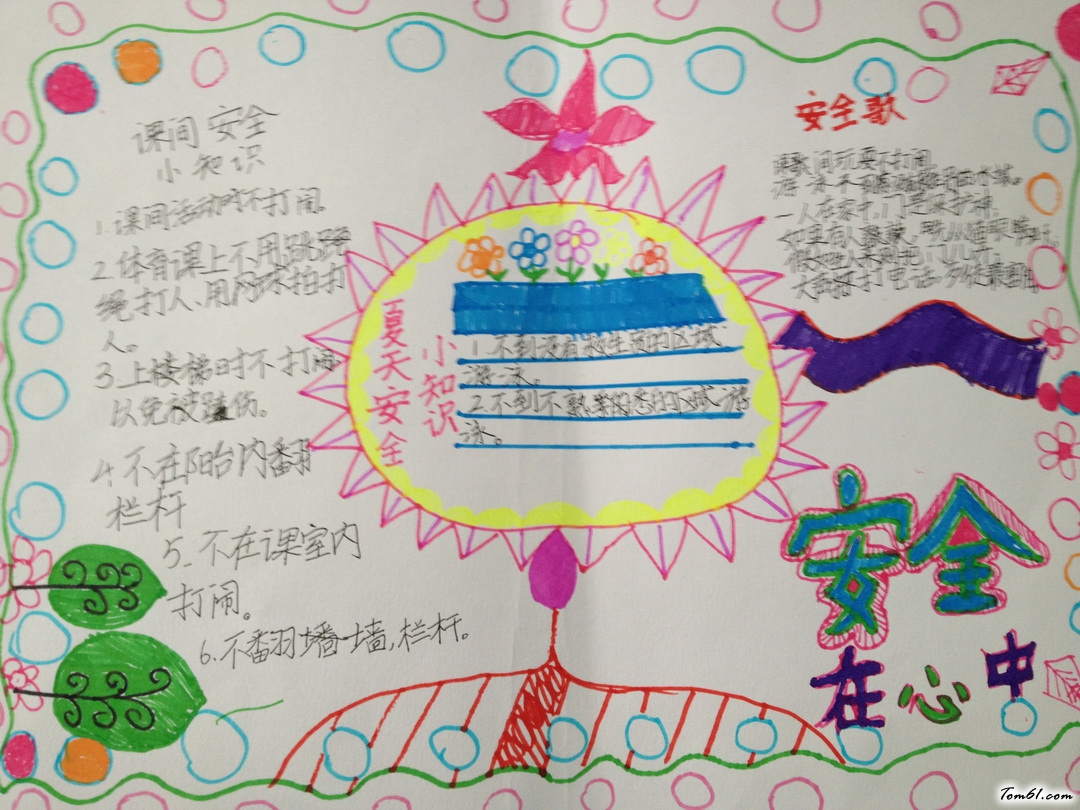 课间安全
小知识
1.课间活动时不打闹。
2.体育课上不用跳跳
绳打人.用内球拍打
人。
3.上楼梯时不打闹
以免被踩伤。
4.不在阳台内翻
栏杆
5.不在课室内
打闹。
6.不翻墙,栏杆。
夏天安全
小知识
1.不到没有救生员的区域
游泳。
2.不到不熟悉的区域游
泳。
安全歌
课间玩耍不打闹
一人在家中,门是保护神
安全
在心中
Tom61.com